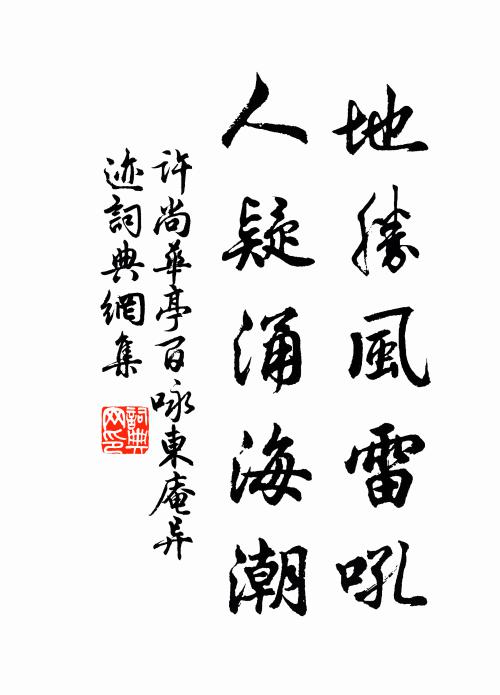 地勝風雷吼
人疑涌海潮
許尚華亭百咏東庵异
迹詞典網集
詞典
网印